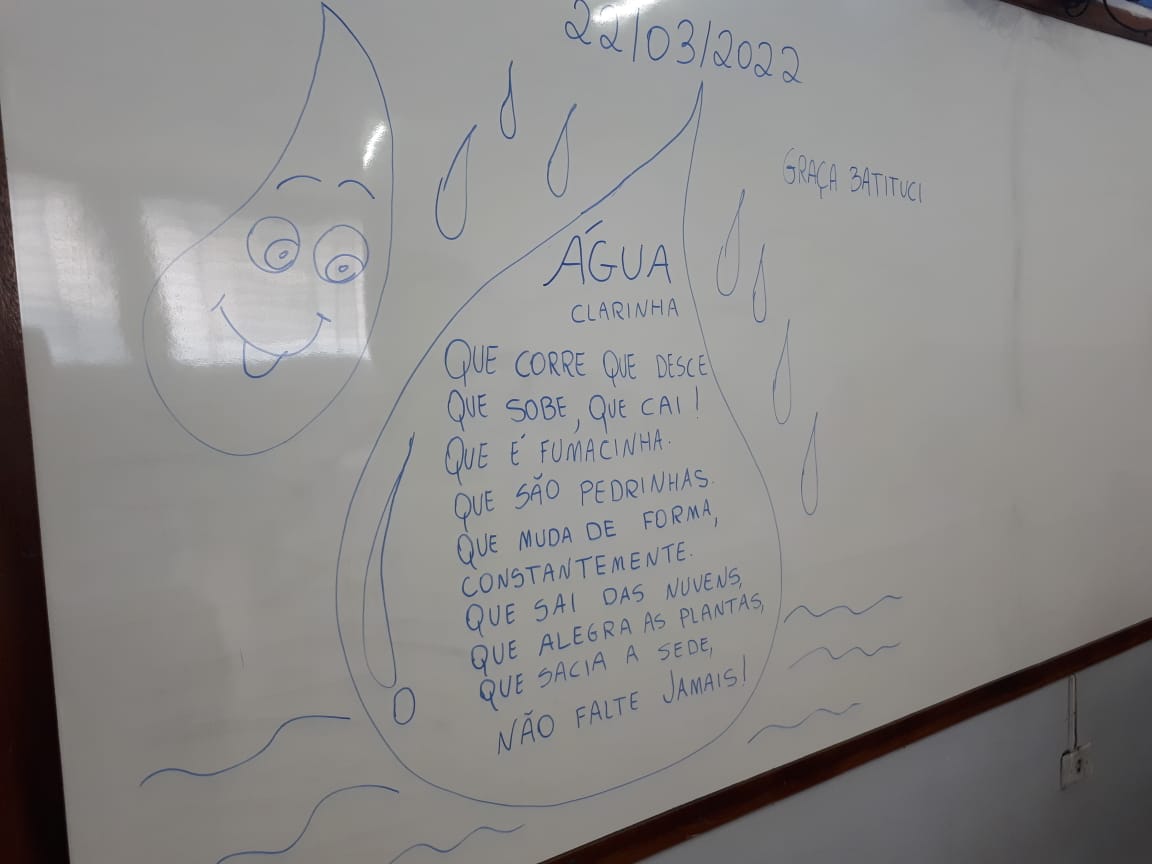 22/03/2022
GRAÇA BATITUCI
ÁGUA
CLARINHA
QUE CORRE QUE DESCE
QUE SOBE, QUE CAI!
QUE É FUMACINHA.
QUE SÃO PEDRINHAS.
QUE MUDA DE FORMA,
CONSTANTEMENTE.
QUE SAI DAS NUVENS,
QUE ALEGRA AS PLANTAS,
QUE SACIA A SEDE,
NÃO FALTE JAMAIS!